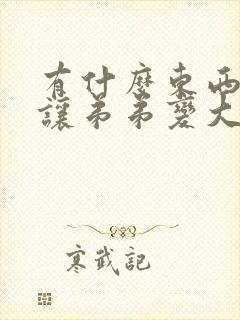 有什麼東西
讓弟弟變大
寒武記